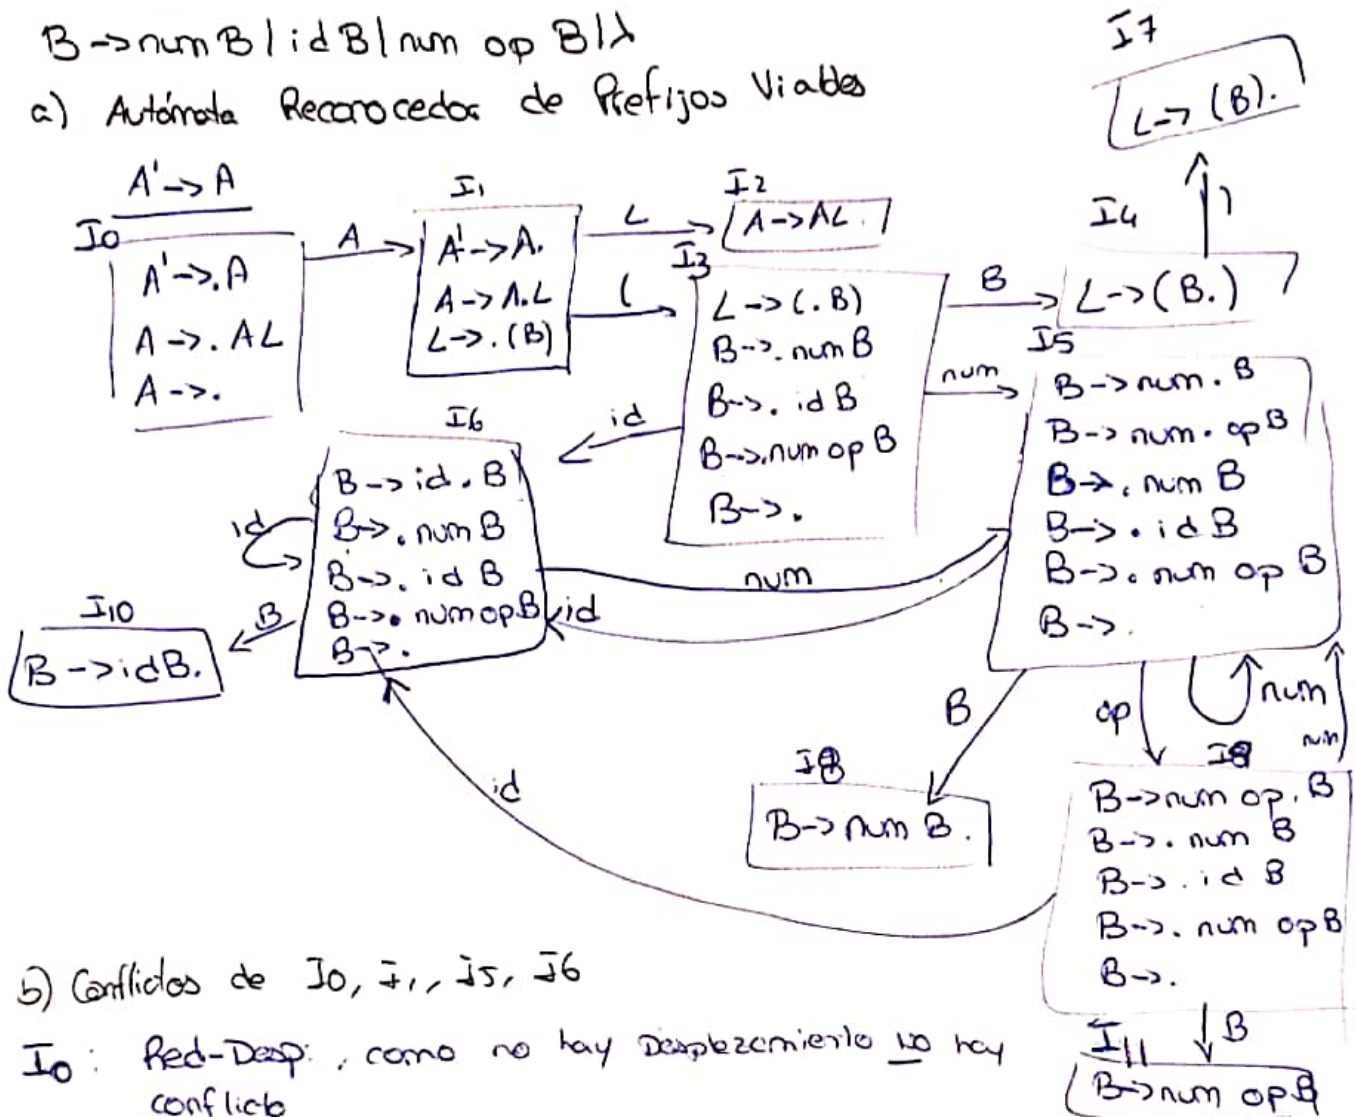 B -> num B | id B | num op B | λ
a) Autómata Reconocedor de Prefijos Viables
I7
L -> (B).
A' -> A
I0
A' -> . A
A -> . AL
A -> .
A
I1
A' -> A.
A -> A.L
L -> . (B)
L
(
I2
A -> AL.
I3
L -> (. B)
B -> . num B
B -> . id B
B -> . num op B
B -> .
B
num
id
)
I4
L -> (B.)
I5
B -> num . B
B -> num . op B
B -> . num B
B -> . id B
B -> . num op B
B -> .
I6
B -> id . B
B -> . num B
B -> . id B
B -> . num op B
B -> .
id
num
id
B
I10
B -> id B.
B
op
num
num
id
I8
B -> num B .
I9
B -> num op . B
B -> . num B
B -> . id B
B -> . num op B
B -> .
B
I11
B -> num op B
b) Conflictos de I0, I1, I5, I6
I0 : Red-Desp: , como no hay Desplazamiento no hay
conflicto